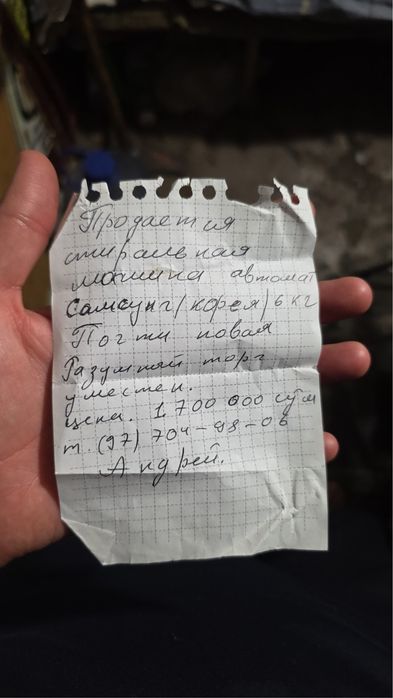 Продается
стиральная
машина автомат
Самсунг/корея/6 кг
Почти новая
Разумный торг
уместен.
цена. 1 700 000 сўм
т. (97) 704-98-06
Андрей.